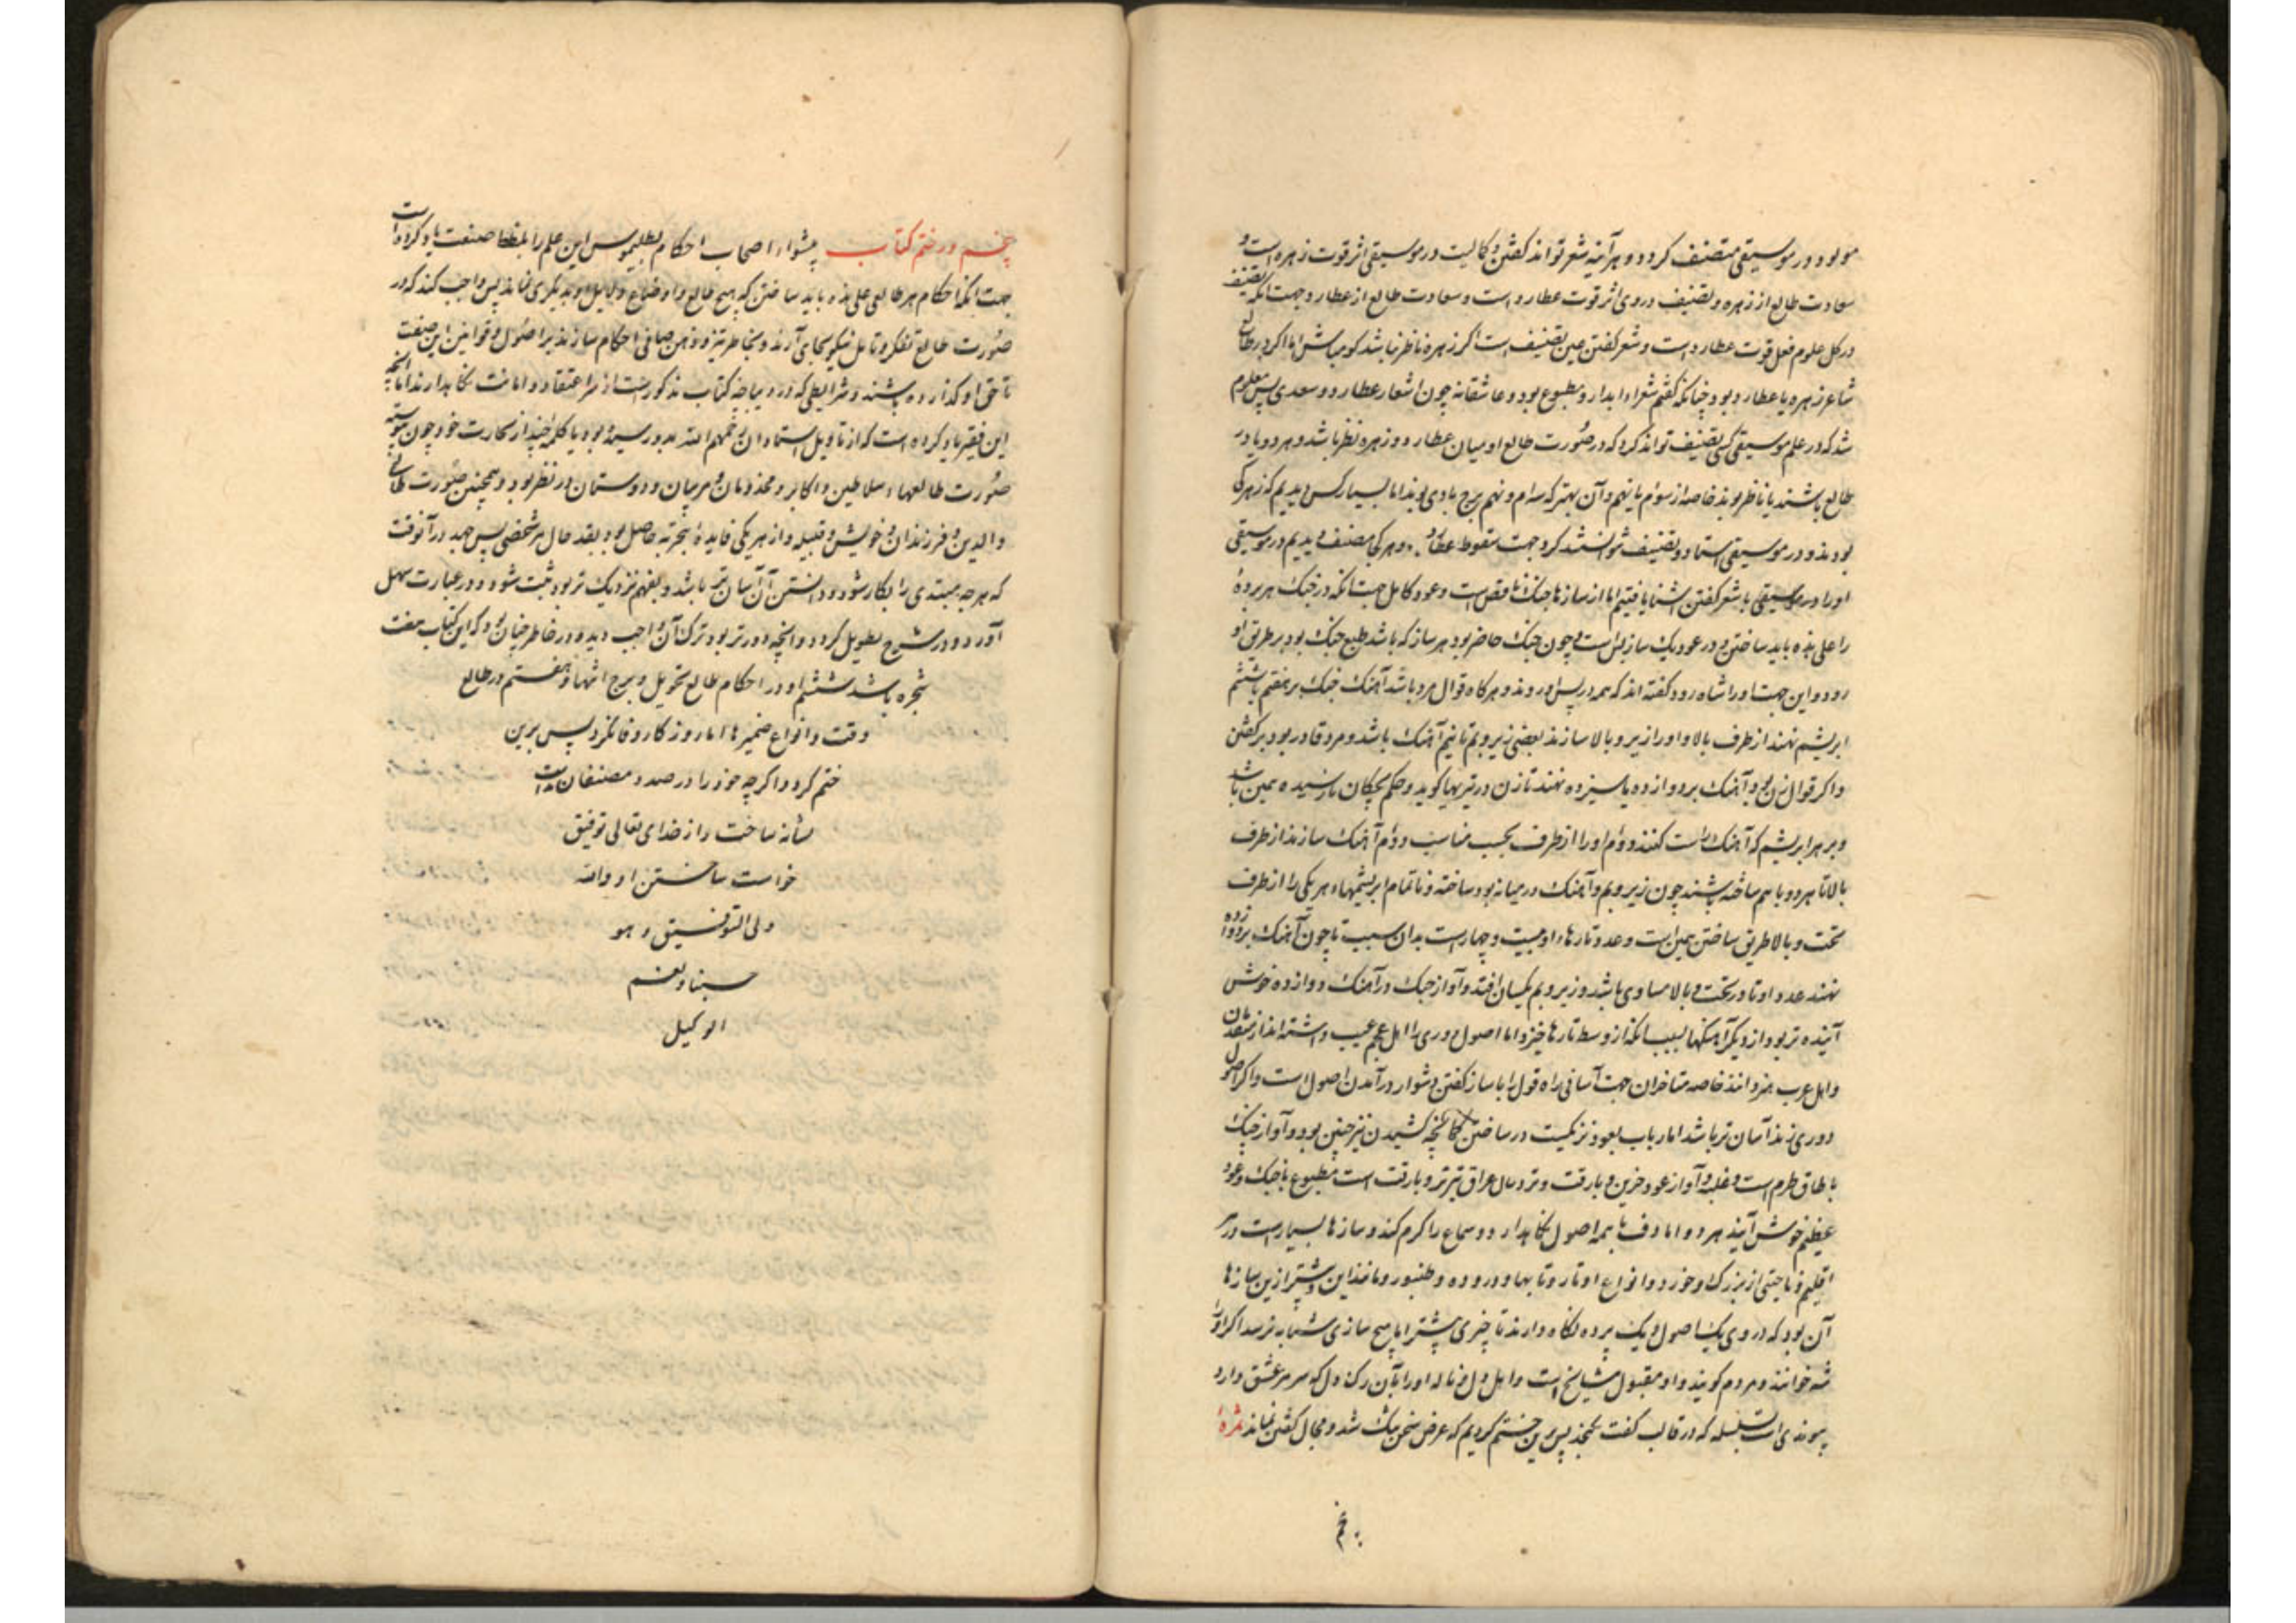 مولود در موسیقی متصنف گردد و هر آینه شعر تواند گفتن و کمالیت در موسیقی اثر قوت زهره است و
سعادت طالع از زهره و تصنیف در وی اثر قوت عطارد است و سعادت طالع از عطارد و جهت آنکه تصنیف
در کل علوم فعل قوت عطارد است و شعر گفتن عین تصنیف است اگر زهره ناظر نباشد گو مباش اما اگر در طالع
شاعر زهره با عطارد بود چنانکه گفتیم شعر او آبدار و مطبوع بود و عاشقانه چون اشعار عطار و سعدی پس معلوم
شد که در علم موسیقی کسی تصنیف تواند کرد که در صورت طالع او میان عطارد و زهره نظر باشد و هر دو یا در
طالع باشند یا ناظر بوند خاصه از سوم یا نهم و آن بهتر که سوم و نهم برج بادی بوند اما بسیار کس دیدیم که زهرکی
بودند و در موسیقی استاد و تصنیف نتوانستند کرد جهت سقوط عطارد و هر که مصنف دیدیم در موسیقی
او را در موسیقی با شعر گفتن آشنا یافتیم اما از سازها چنگ ناقص است و عود کامل جهت آنکه در چنگ هر پرده
را علی حده باید ساختن و در عود یک ساز بس است و چون چنگ حاضر بود هر ساز که باشد طبع چنگ بود بر طریق او
رود و این جهت او را شاه رود گفته اند که همه در پس او روند و هرگاه قوال مرد باشد آهنگ چنگ بر هفتم یا ششم
ابریشم نهند از طرف بالا و او را زیر و بالا سازند بعضی زیر و بم تا نیم آهنگ باشد و مرد قادر بود بر گفتن
و اگر قوال زن بود آهنگ بر دوازده یا سیزده نهند تا زن در تیزیها گوید و حکم بچگان نارسیده همین باشد
و بر هر ابریشم که آهنگ راست کنند دوم او را از طرف بحسب مناسب دوم آهنگ سازند از طرف
بالا تا هر دو با هم ساخته باشند چون زیر و بم و آهنگ در میانه بود ساخته و تا تمام ابریشمها هر یکی را از طرف
تحت و بالا طریق ساختن همین است و عدد تارهاء او بیست و چهار است بدان سبب تا چون آهنگ بر دوازده
نهند عدد اوتار در تحت و بالا مساوی باشد و زیر و بم یکسان افتد و آواز چنگ در آهنگ دوازده خوش
آینده تر بود از دیگر آهنگها بسبب آنکه از وسط تارها خیزد اما اصول دوری را اهل عجم عیب داشته اند از متقدمان
و اهل عرب هنر دانند خاصه متاخران جهت آسانی راه قول را با ساز گفتن دشوار در آمدن اصول است و اگر اصول
دوری زند آسان تر باشد اما رباب بعود نزدیکست در ساختن کمانچه کشیدن نیز چنین بود و آواز چنگ
با طاق طرم است و غلبه و آواز عود حزین و با رقت و نزد سال عراق تیزتر و با رقت است مطبوع با چنگ و عود
عظیم خوش آیند هر دو اما دف با همه اصول نگاه دارد و سماع را گرم کند و سازها بسیار است در هر
اقلیم و ناحیتی از بزرگ و خورد و انواع اوتار و نایها و دروده و طنبور و مانند این و بیشتر ازین سازها
آن بود که در وی یک اصول و یک پرده نگاه دارند تا چیزی بیشتر اما هیچ سازی بشبابه نرسد اگر او را
شه خوانند و مردم گویند و او مقبول مشایخ است و اهل دل و ناله او را بآن رگ دل که سر مر عشق دارد
پیوندی است سلسله که در قالب گفت نگنجد پس برین ختم کردیم که عرض سخن تنگ شد و مجال گفتن نماند ثمره
پنجم
پنجم در ختم کتاب پیشواء اصحاب احکام بطلیموس این علم را بلفظ صنعت یاد کرده است
جهت آنکه احکام هر طالعی علی حده باید ساختن که هیچ طالع و اوضاع و دلایل او بدیگری نماند پس واجب کند که در
صورت طالع تفکر و تامل نیکو بجای آرند و بخاطر تیز و ذهن صافی احکام سازند بر اصول و قوانین این صنعت
تا حق او گذارده باشند و شرایطی که در دیباچه کتاب مذکورست از سر اعتقاد و امانت نگاهدارند اما آنچه
این فقیر یاد کرده است که از تاویل استادان رحمهم الله بدو رسیده بود یا کلمه چند از تجارت خود چون پیوسته
صورت طالعهاء سلاطین و اکابر و مخدومان و مربیان و دوستان در نظر بود و همچنین صورت طالع
والدین و فرزندان و خویش و قبیله و از هر یکی فایده تجربه حاصل بود بقدر حال هر شخصی پس جهد در آنوقت
که هر چه مبتدی را بکار شود و دانستن آن آسان تر باشد و بفهم نزدیک تر بود ثبت شود و در عبارت سهل
آورد و در شرح تطویل گردد و آنچه دورتر بود ترک آن واجب دید و در خاطر چنان بود که این کتاب هفت
شجره باشد ششم او در احکام طالع تحویل و برج انتها و هفتم در طالع
وقت و انواع ضمیرها اما روزگار وفا نکرد پس برین
ختم کرد و اگر چه خود را در صدد مصنفان
نشانه ساخت و از خدای تعالی توفیق
خواست ساختن او والله
ولی التوفیق و هو
حسبنا و نعم
الوکیل